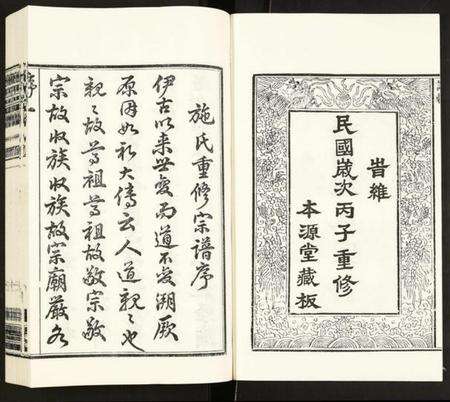 旹維
民國歲次丙子重修
本源堂藏板
施氏重修宗譜序
伊古以來世變而道不變溯厥
原因如禮大傳云人道親々也
親々故尊祖尊祖故敬宗敬
宗故收族收族故宗廟嚴
序一